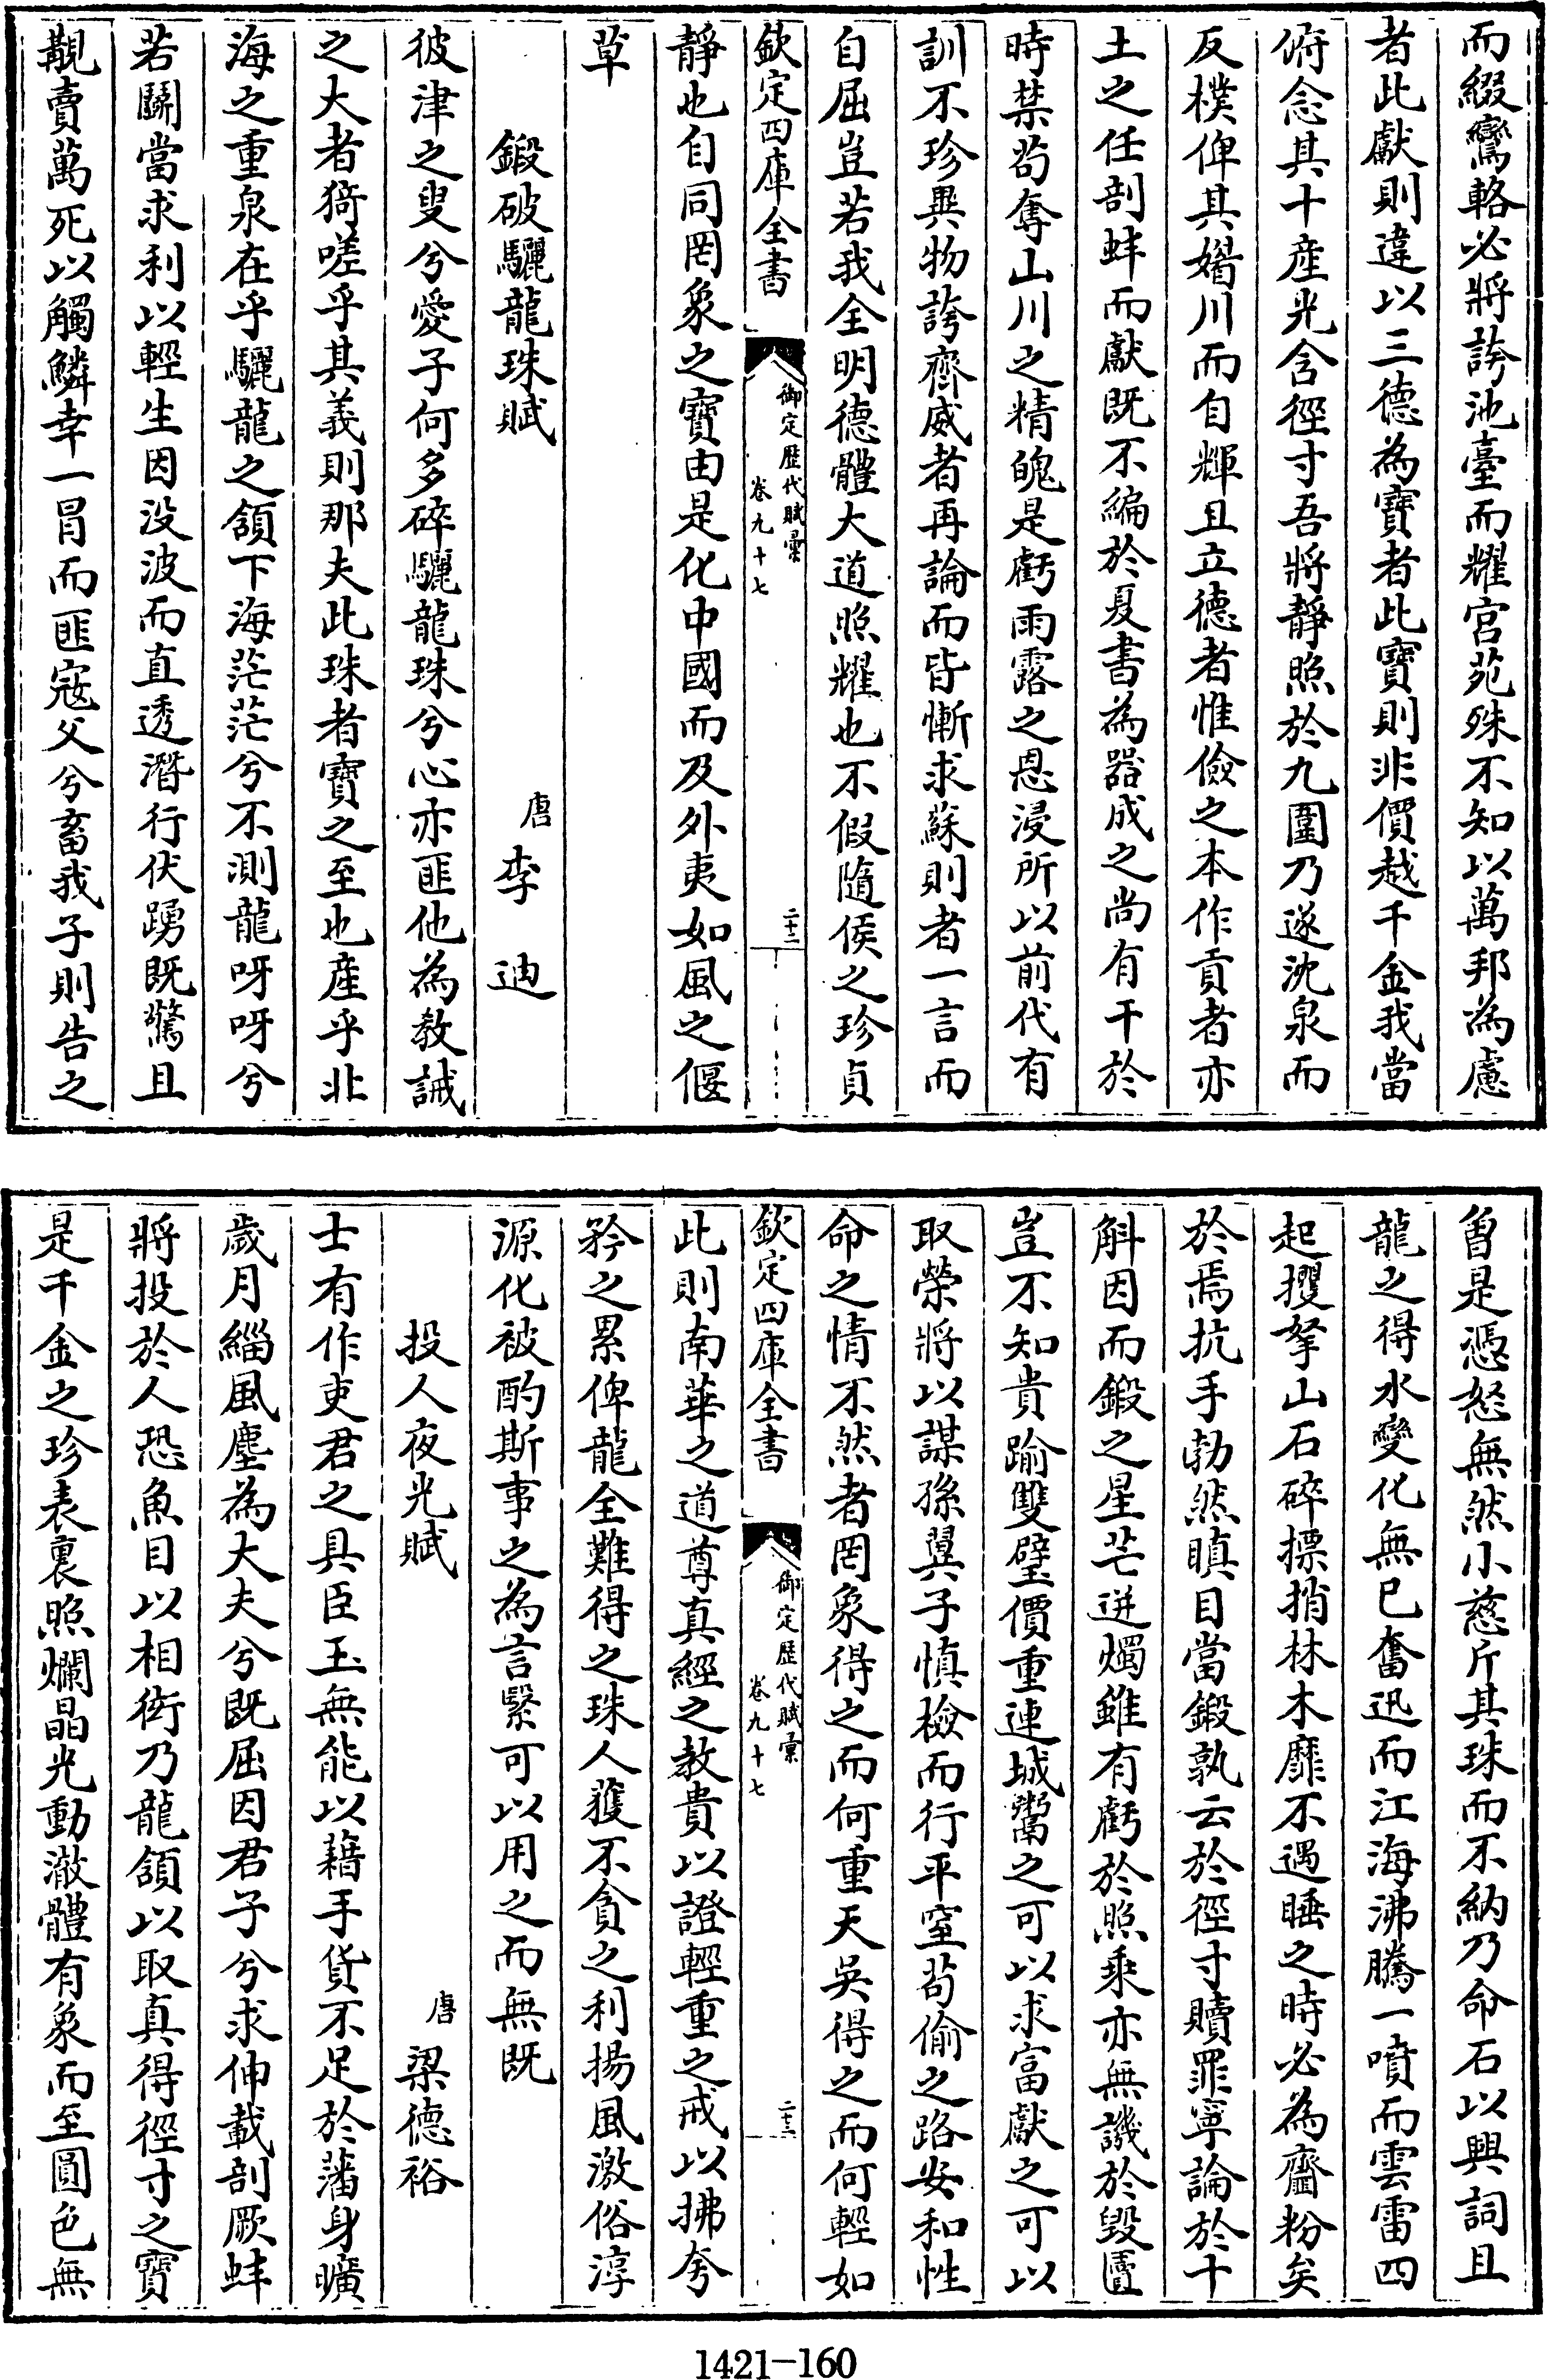 而綴鸞輅必將誇池臺而耀宮苑殊不知以萬邦為慮
者此獻則違以三德為寶者此寶則非價越千金我當
俯念其十産光含徑寸吾將靜照於九圍乃遂沈泉而
反樸俾其媚川而自輝且立德者惟儉之本作貢者亦
土之任剖蚌而獻既不編於夏書為器成之尚有干於
時禁茍奪山川之精魄是虧雨露之恩浸所以前代有
訓不珍異物誇齊威者再論而皆慚求蘇則者一言而
自屈豈若我全明德體大道照耀也不假隨侯之珍貞
欽定四庫全書
御定歷代賦彙
卷九十七
二十二
靜也自同罔象之寶由是化中國而及外夷如風之偃
草
鍛破驪龍珠賦
唐 李 迪
彼津之叟兮愛子何多碎驪龍珠兮心亦匪他為教誡
之大者猗嗟乎其義則那夫此珠者寶之至也産乎北
海之重泉在乎驪龍之頷下海茫茫兮不測龍呀呀兮
若鬭當求利以輕生因没波而直透潛行伏踴既驚且
覩賣萬死以觸鱗幸一冒而匪寇父兮畜我子則告之
曾是憑怒無然小慈斥其珠而不納乃命石以興詞且
龍之得水變化無已奮迅而江海沸騰一噴而雲雷四
起攫拏山石碎摽捎林木靡不遇睡之時必為齏粉矣
於焉抗手勃然瞋目當鍛孰云於徑寸贖罪寧論於十
斛因而鍛之星芒迸燭雖有虧於照乘亦無譏於毀匵
豈不知貴踰雙璧價重連城鬻之可以求富獻之可以
取榮將以謀孫翼子慎檢而行平窒茍偷之路安和性
命之情不然者罔象得之而何重天吳得之而何輕如
欽定四庫全書
御定歷代賦彙
卷九十七
二十三
此則南華之道尊真經之教貴以證輕重之戒以拂夸
矜之累俾龍全難得之珠人獲不貪之利揚風激俗淳
源化被酌斯事之為言緊可以用之而無既
投人夜光賦
唐 梁德裕
士有作吏君之具臣玉無能以藉手貨不足於藩身曠
歲月緇風塵為大夫兮既屈因君子兮求伸載剖厥蚌
將投於人恐魚目以相衒乃龍頷以取真得徑寸之寶
是千金之珍表裏照爛晶光動澈體有象而至圓色無
1421-160